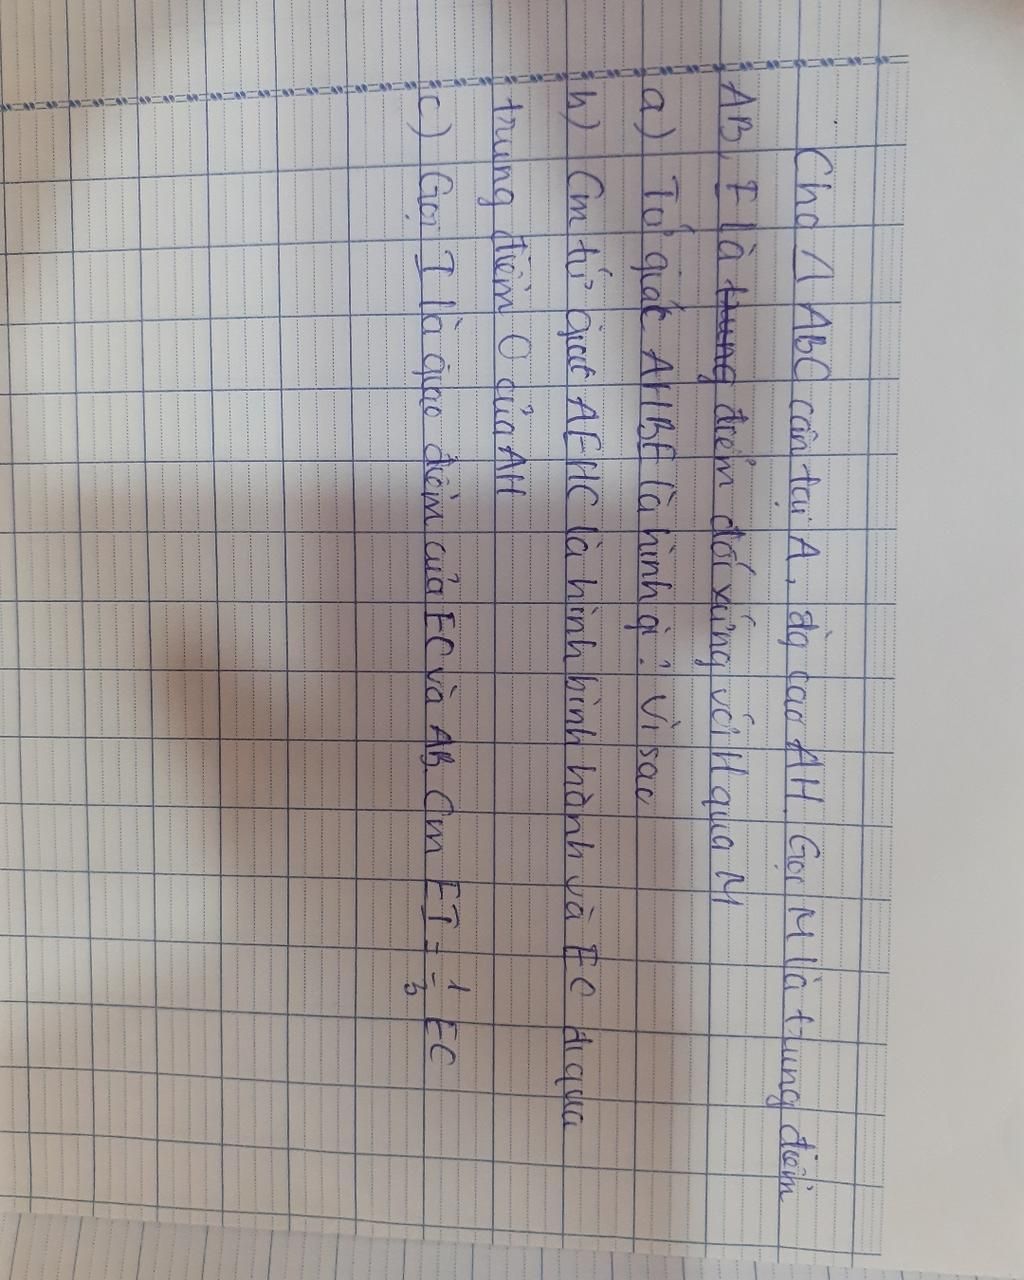 Cho Δ ABC cân tại A, đg cao AH. Gọi M là trung điểm
AB, E là trung điểm đối xứng với H qua M
a) Tứ giác AHBE là hình gì? Vì sao
b) Cm tứ giác AEHC là hình bình hành và EC đi qua
trung điểm O của AH
c) Gọi I là giao điểm của EC và AB. Cm EI = 1/3 EC